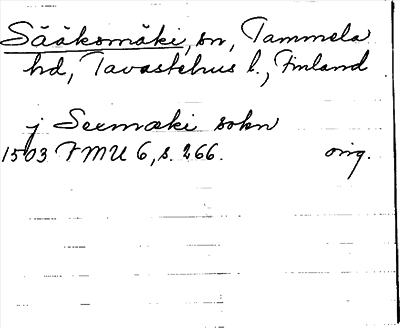 Sääksmäki, sn, Tammela
hd, Tavastehus l., Finland
j Seemæki sokn
1503 FMU 6, s. 266. orig.